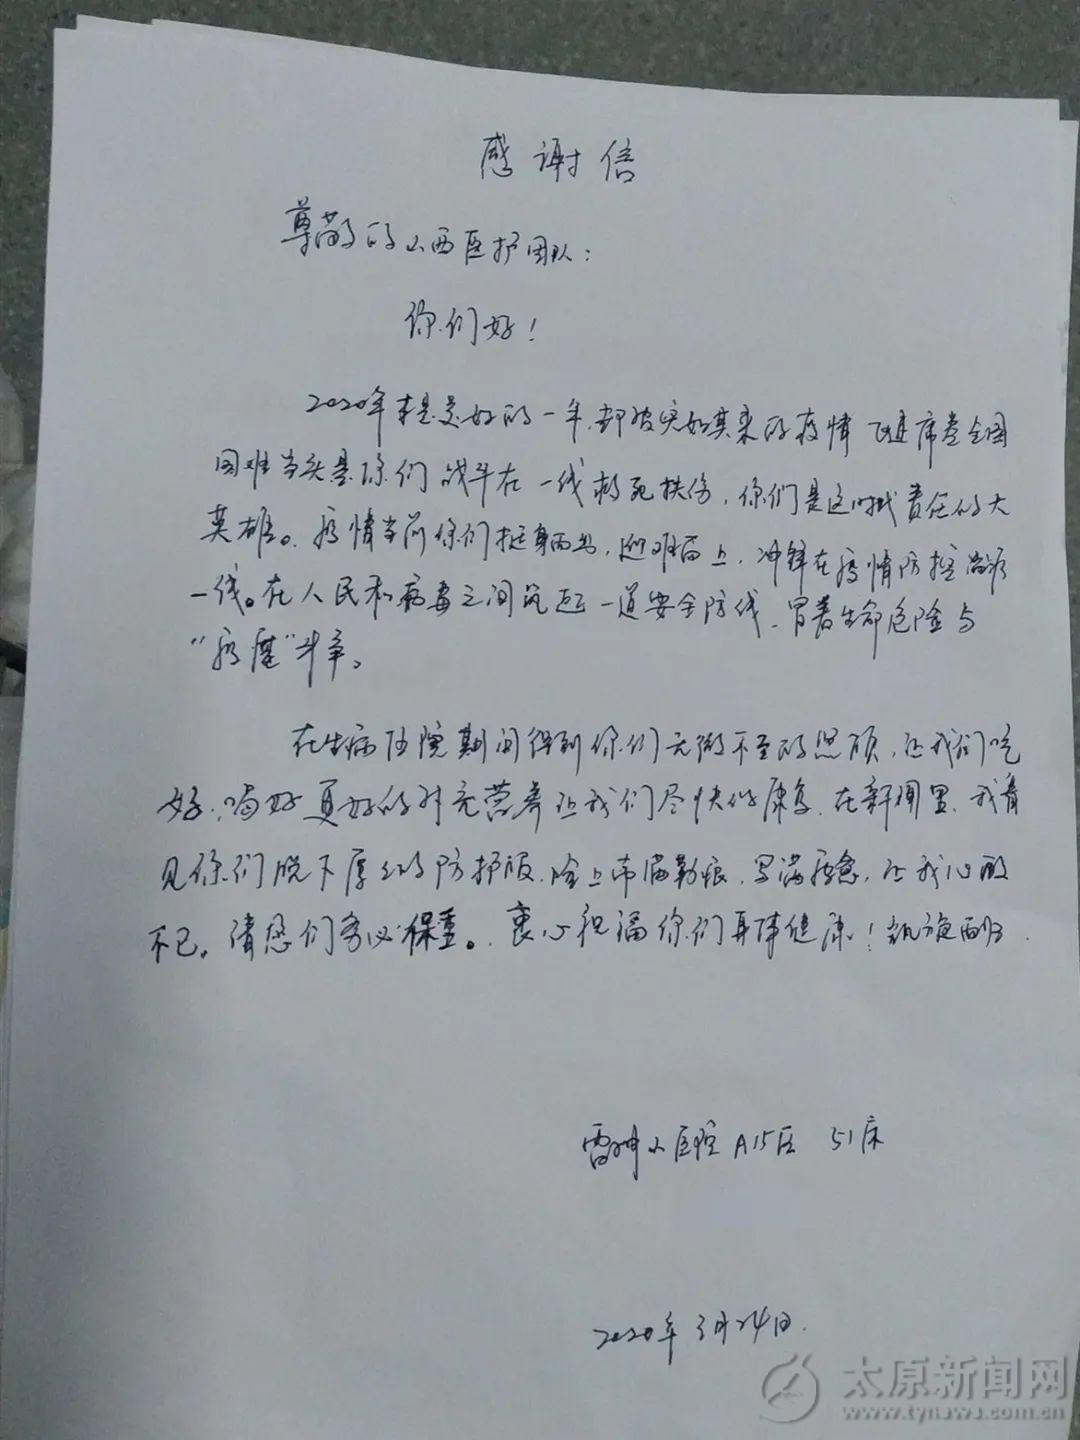 感谢信
尊敬的山西医护团队：
你们好！
2020年本是美好的一年,却被突如其来的疫情飞速席卷全国
困难当头是你们战斗在一线救死扶伤,你们是这时代责任的大
英雄。疫情当前你们挺身而出,迎难而上,冲锋在疫情防控治疗
一线。在人民和病毒之间筑起一道安全防线、冒着生命危险与
“疫魔”斗争。
在生病住院期间得到你们无微不至的照顾,让我们吃
好,喝好更好的补充营养让我们尽快的康复.在新闻里,我看
见你们脱下厚的防护服,脸上布满勒痕,写满疲惫,让我心酸
不已。请您们务必保重。衷心祝福你们身体健康！凯旋而归.
雷神山医院A15区 51床
2020年3月24日.
太原新闻网
www.tynews.com.cn